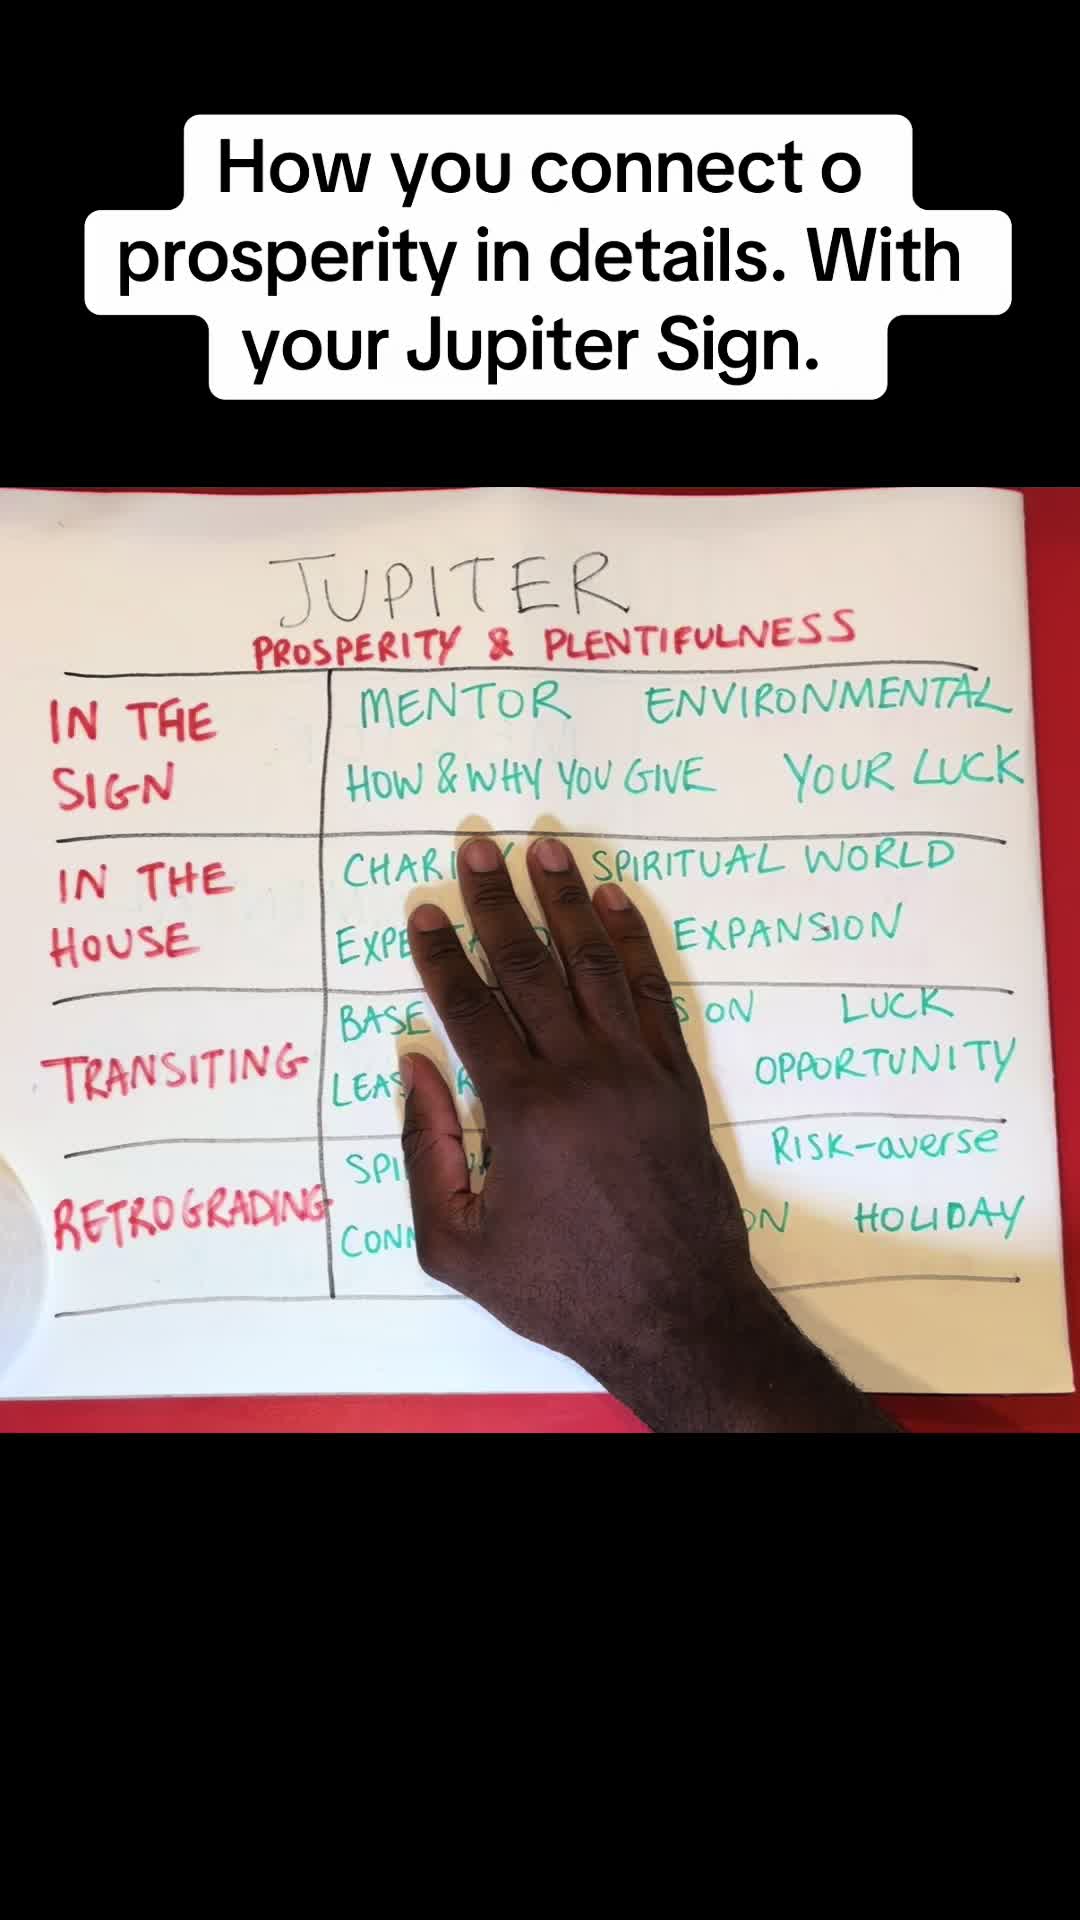 How you connect o
prosperity in details. With
your Jupiter Sign.
JUPITER
PROSPERITY & PLENTIFULNESS
IN THE
SIGN
MENTOR ENVIRONMENTAL
HOW & WHY YOU GIVE YOUR LUCK
IN THE
HOUSE
SPIRITUAL WORLD
EXPANSION
TRANSITING
LUCK
OPPORTUNITY
RETROGRADING
RISK-averse
HOLIDAY